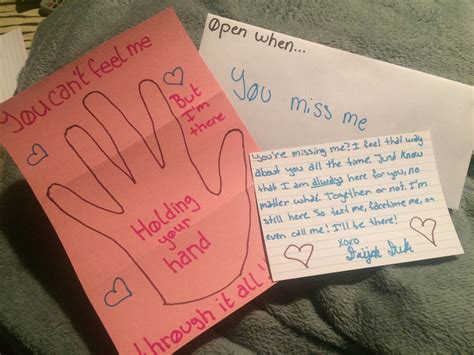 You can't feel me
But
I'm
there
Holding
your
hand
through it all !!
Open when...
You miss me
You're missing me? I feel that way
about you all the time. Just know
that I am always here for you, no
matter what. Together or not. I'm
still here. So text me, facetime me, or
even call me! I'll be there!
xoxo